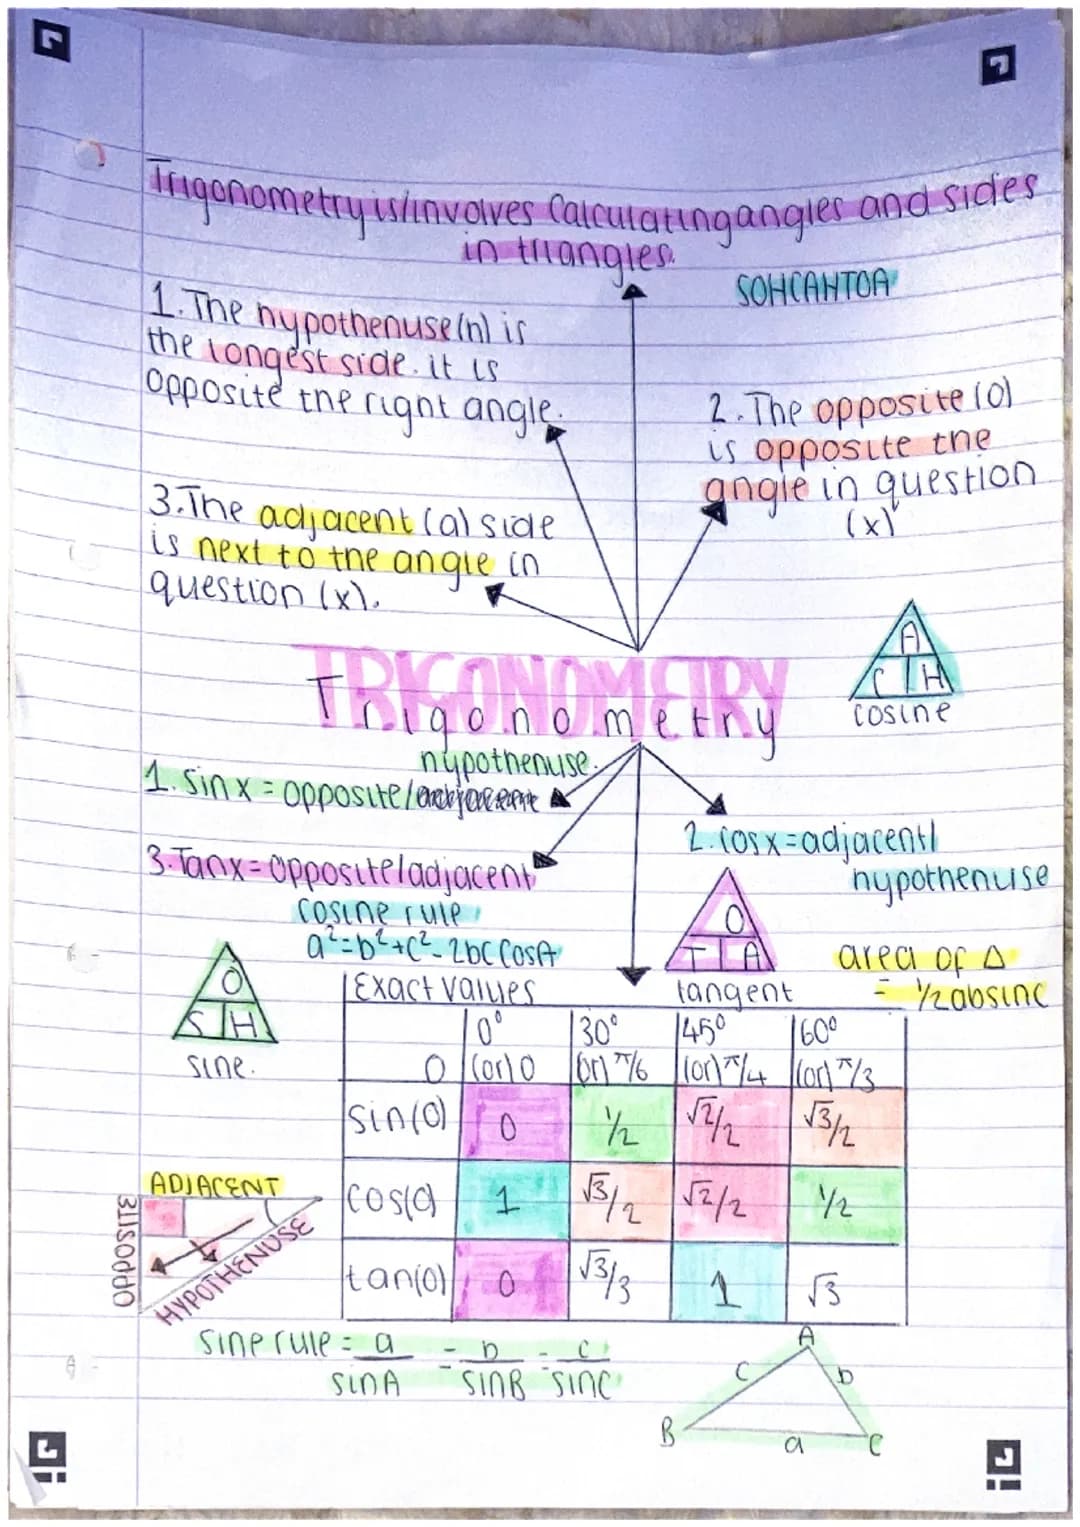 Trigonometry is/involves Calculating angles and sides
in triangles.
SOHCAHTOA
1. The hypothenuse (h) is
the longest side. it is
opposite the right angle.
2. The opposite (o)
is opposite the
angle in question
(x)
3. The adjacent (a) side
is next to the angle in
question (x).
A
C H
cosine
TRIGONOMETRY
Trigonometry
hypothenuse.
1. Sin x = opposite/
2. Cos x = adjacent/
hypothenuse
3. Tan x = opposite/adjacent
cosine rule
a² = b² + c² - 2bc CosA
O
T A
tangent
area of △
= 1/2 absinc
O
S H
sine.
Exact values
0° 30° 45° 60°
0 (or) 0 (or) π/6 (or) π/4 (or) π/3
sin(0) 0 1/2 √2/2 √3/2
cos(0) 1 √3/2 √2/2 1/2
tan(0) 0 √3/3 1 √3
ADJACENT
OPPOSITE
HYPOTHENUSE
sine rule = a = b = c
sinA sinB sinC
A
c b
B a C